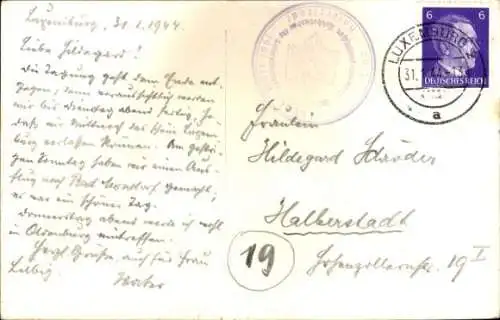 Luxemburg, 31.1.1944.
Liebe Hildegard!
Die Tagung geht dem Ende ent-
gegen, denn voraussichtlich werden
wir bis Dienstag abend fertig, so
daß wir Mittwoch das Heim Luxem-
burg verlassen können. Am gestri-
gen Sonntag haben wir einen Aus-
flug nach Bad Mondorf gemacht,
es war ein schöner Tag.
Donnerstag abend werde ich wohl
in Oldenburg eintreffen.
Herzl. Grüße auch für Frau
Walter
6 6
DEUTSCHES REICH
LUXEMBURG
31.
a
Fräulein
Hildegard Schröder
Halberstadt
19
Hohenzollernstr. 19 I